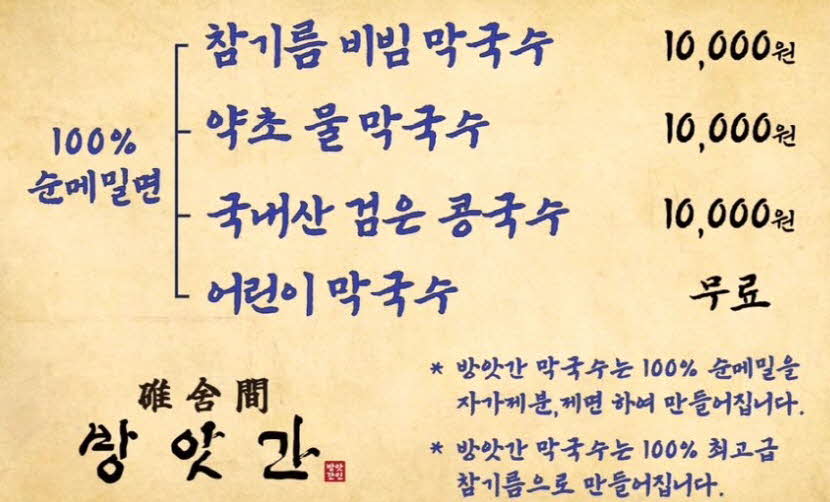 참기름 비빔 막국수 10,000원
약초 물 막국수 10,000원
100%
순메밀면
국내산 검은 콩국수 10,000원
어린이 막국수 무료
* 방앗간 막국수는 100% 순메밀을
자가제분,제면 하여 만들어집니다.
* 방앗간 막국수는 100% 최고급
참기름으로 만들어집니다.
碓舍間
방앗간
방앗
간인